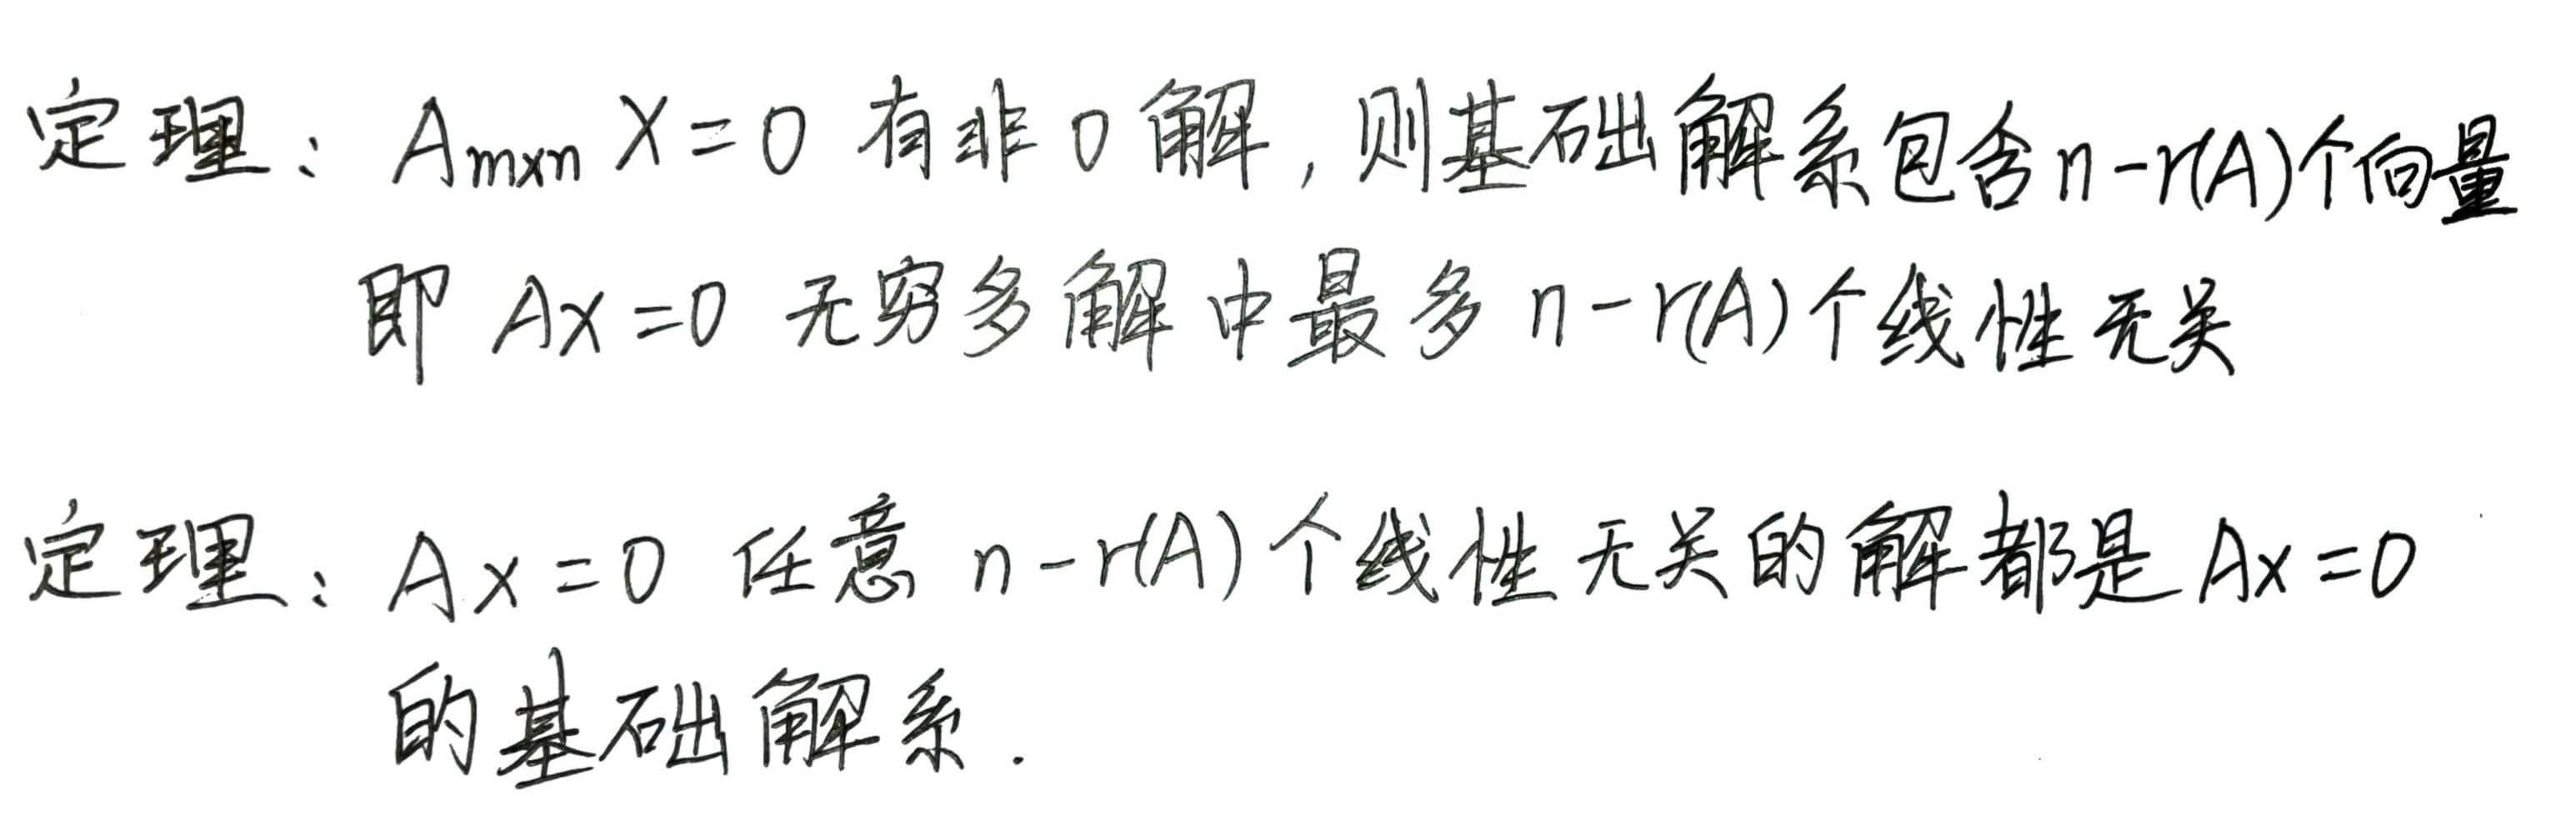 定理：Am×n X=0 有非0解，则基础解系包含n-r(A)个向量
即 Ax=0 无穷多解中最多 n-r(A)个线性无关
定理：Ax=0 任意 n-r(A)个线性无关的解都是 Ax=0
的基础解系.